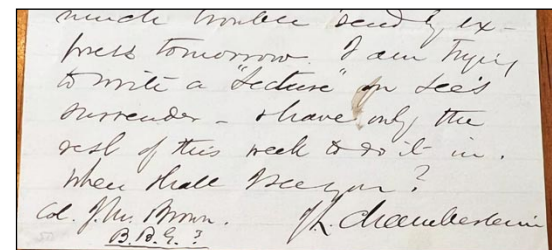 much trouble send by ex-
press tomorrow. I am trying
to write a "Lecture" on Lee's
surrender - & have only the
rest of this week to do it in.
When shall I see you?
Col. J. M. Brown. J L Chamberlain
B.B.G.?